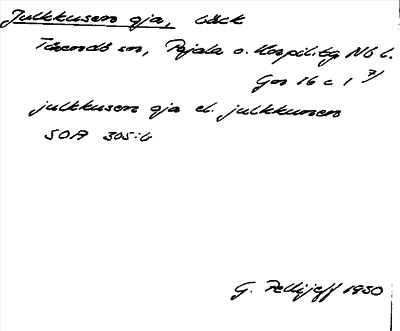 Julkkusen oja, bäck
Tärendö sn, Pajala o. Korpil. tg Nb l.
Gen 16 c 1
julkkusen oja el. julkkunen
SOA 305:6
G. Pellijeff 1950